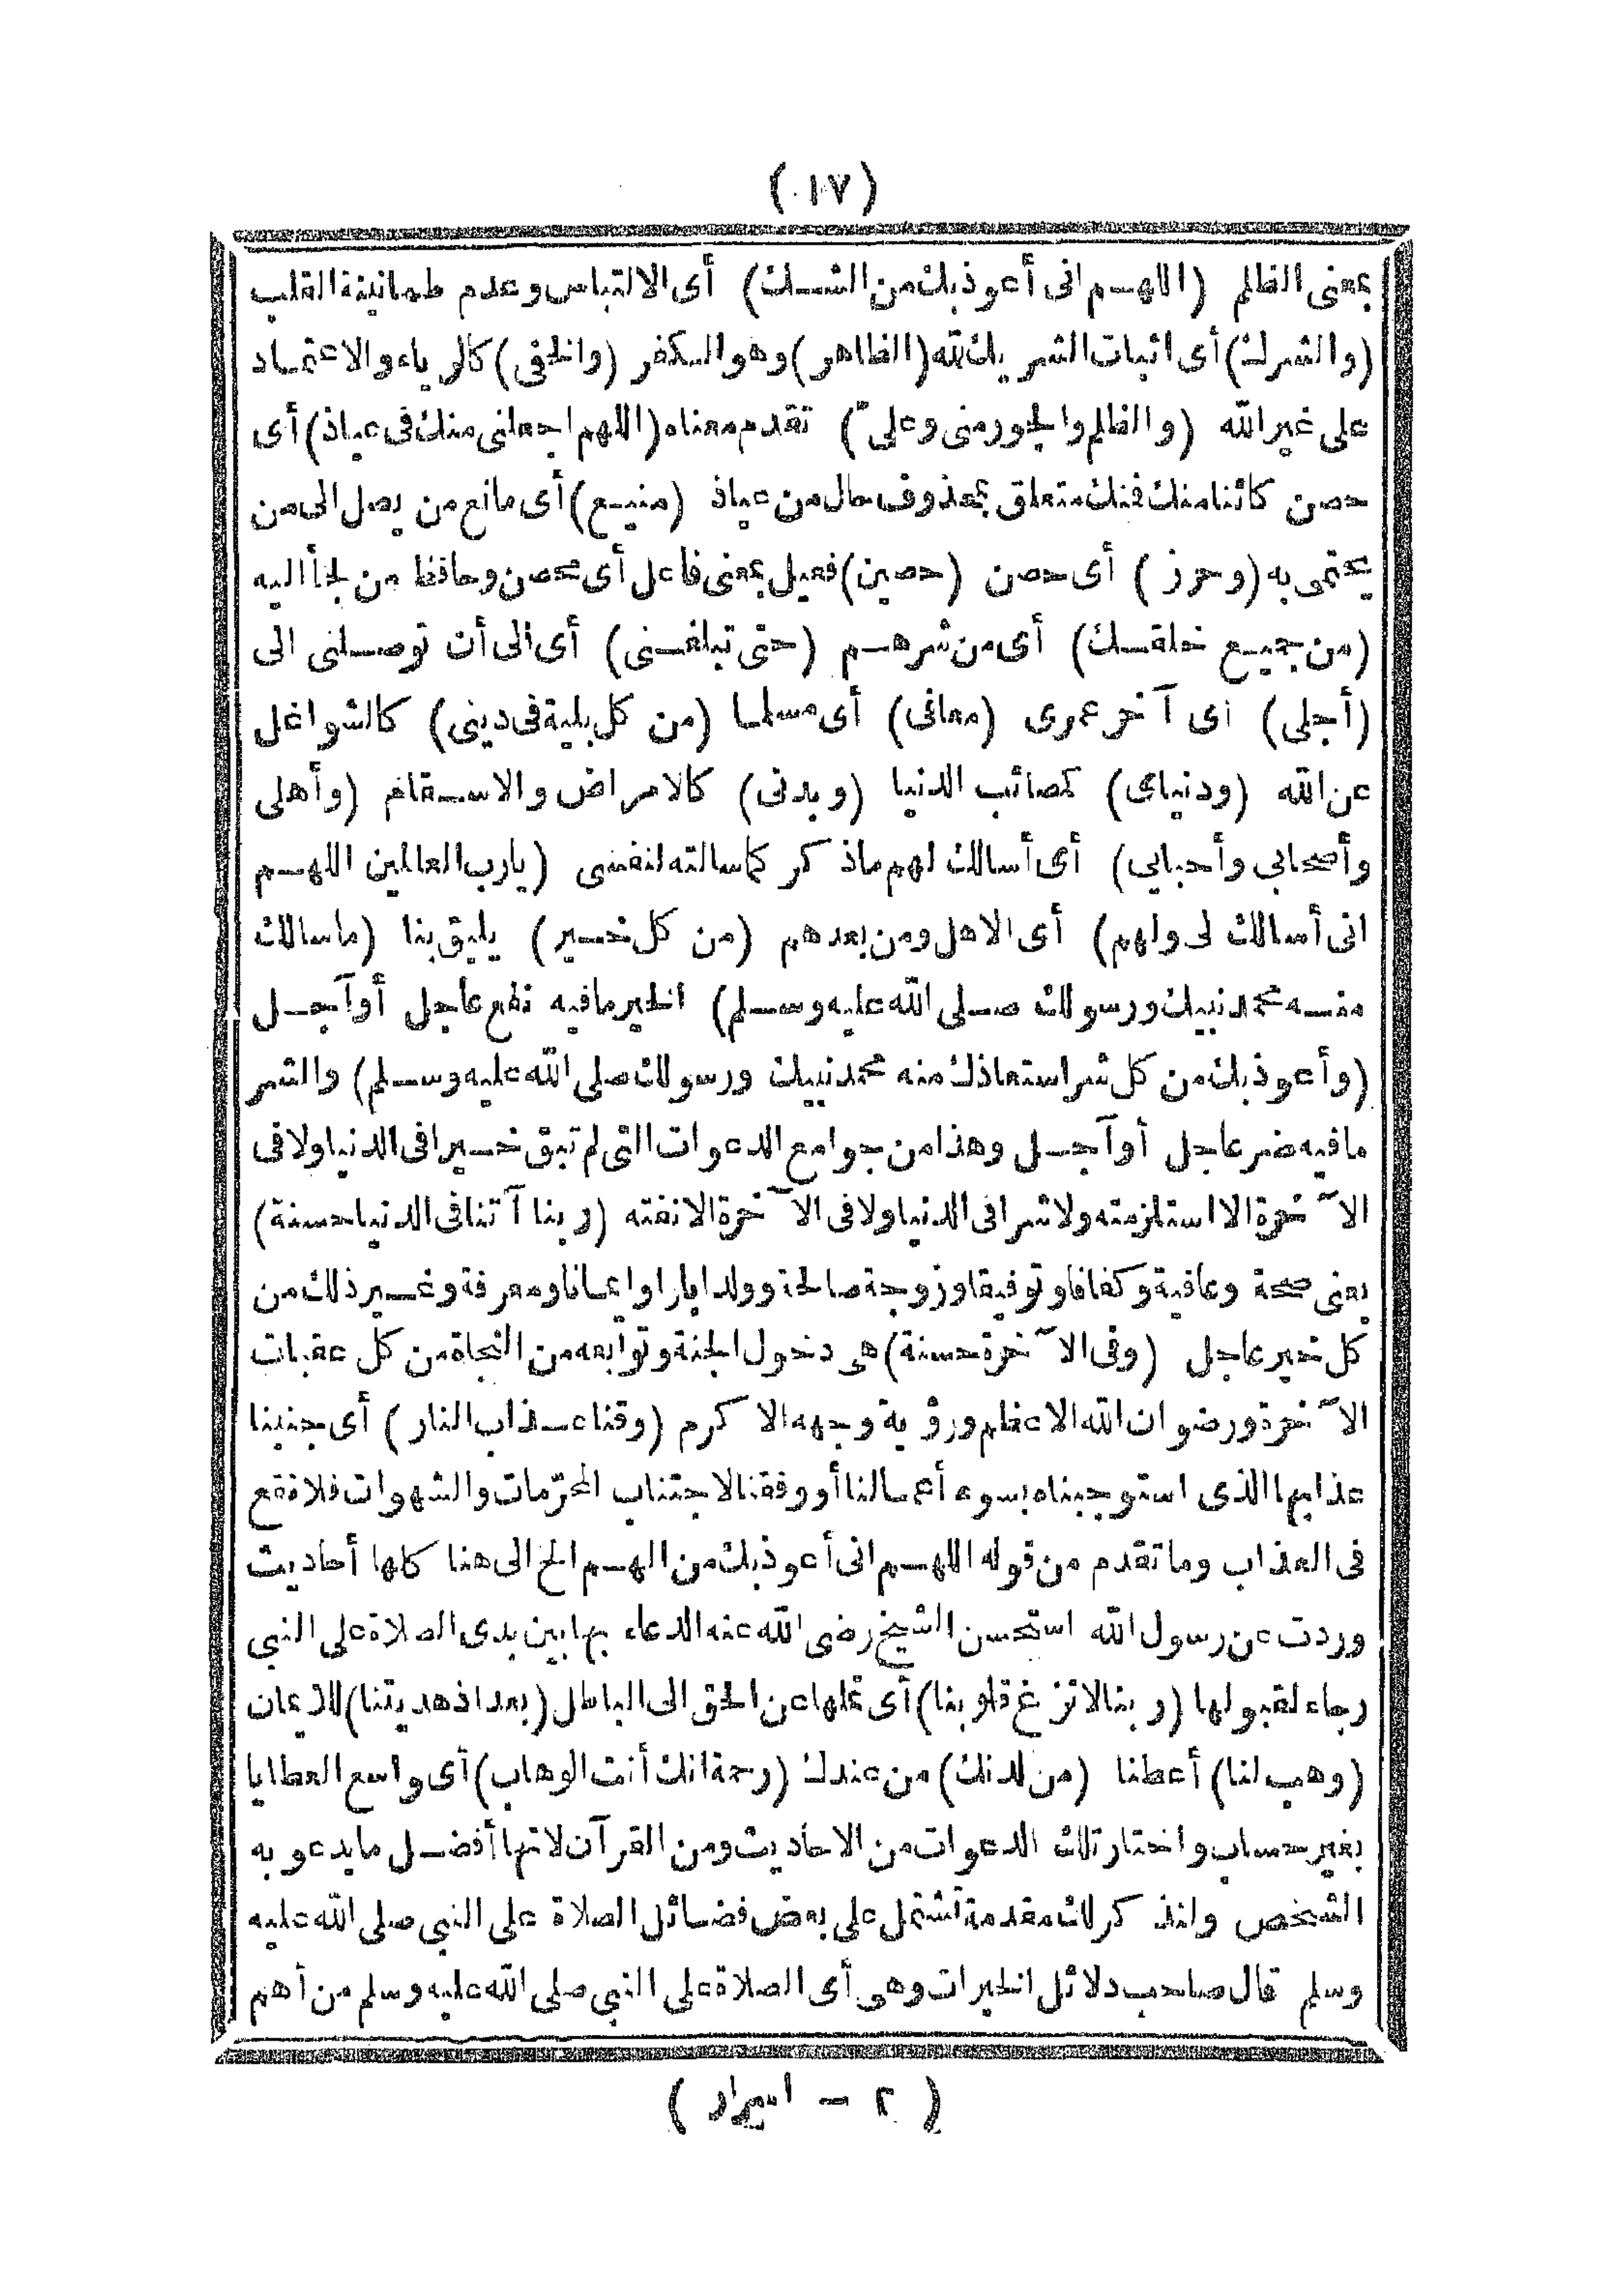 (١٧)
بمعنى الظلم (اللهم انى أعوذ بك من الشك) أى الالتباس وعدم طمانينة القلب
(والشرك) أى اثبات الشريك لله (الظاهر) وهو الكفر (والخفى) كالرياء والاعتماد
على غير الله (والظلم والجور منى وعلىّ) تقدم معناه (اللهم اجعلنى منك فى عياذ) أى
حصن كائنا منك فمنك متعلق بمحذوف حال من عياذ (منيع) أى مانع من يصل الى من
يحتمى به (وحرز) أى حصن (حصين) فعيل بمعنى فاعل أى محصن وحافظ من لجأ اليه
(من جميع خلقك) أى من شرهم (حتى تبلغنى) أى الى أن توصلنى الى
(أجلى) أى آخر عمرى (معافى) أى مسلما (من كل بلية فى دينى) كالشواغل
عن الله (ودنياى) كمصائب الدنيا (وبدنى) كالامراض والاسقام (وأهلى
وأصحابى وأحبابى) أى أسالك لهم ماذكر كما سالته لنفسى (يارب العالمين اللهم
انى أسالك لى ولهم) أى الاهل ومن بعدهم (من كل خير) يليق بنا (ما سالك
منه محمد نبيك ورسولك صلى الله عليه وسلم) الخير مافيه نفع عاجل أو آجل
(وأعوذ بك من كل شر استعاذك منه محمد نبيك ورسولك صلى الله عليه وسلم) والشر
مافيه ضر عاجل أو آجل وهذا من جوامع الدعوات التى لم تبق خيرا فى الدنيا ولا فى
الآخرة الا استلزمته ولا شرا فى الدنيا ولا فى الآخرة الا نفته (ربنا آتنا فى الدنيا حسنة)
يعنى صحة وعافية وكفافا وتوفيقا وزوجة صالحة وولدا بارا وايمانا ومعرفة وغير ذلك من
كل خير عاجل (وفى الآخرة حسنة) هى دخول الجنة وتوابعه من النجاة من كل عقبات
الآخرة ورضوان الله الاعظم ورؤية وجهه الاكرم (وقنا عذاب النار) أى جنبنا
عذابها الذى استوجبناه بسوء أعمالنا أو وفقنا لاجتناب المحرّمات والشهوات فلا نقع
فى العذاب وما تقدم من قوله اللهم انى أعوذ بك من الهم الخ الى هنا كلها أحاديث
وردت عن رسول الله استحسن الشيخ رضى الله عنه الدعاء بها بين يدى الصلاة على النبى
رجاء لقبولها (ربنا لا تزغ قلوبنا) أى تملها عن الحق الى الباطل (بعد اذ هديتنا) للاذعان
(وهب لنا) أعطنا (من لدنك) من عندك (رحمة انك أنت الوهاب) أى واسع العطايا
بغير حساب واختار تلك الدعوات من الاحاديث ومن القرآن لانها أفضل مايدعو به
الشخص ولنذكر لك مقدمة تشتمل على بعض فضائل الصلاة على النبى صلى الله عليه
وسلم قال صاحب دلائل الخيرات وهى أى الصلاة على النبى صلى الله عليه وسلم من أهم
(٢ –